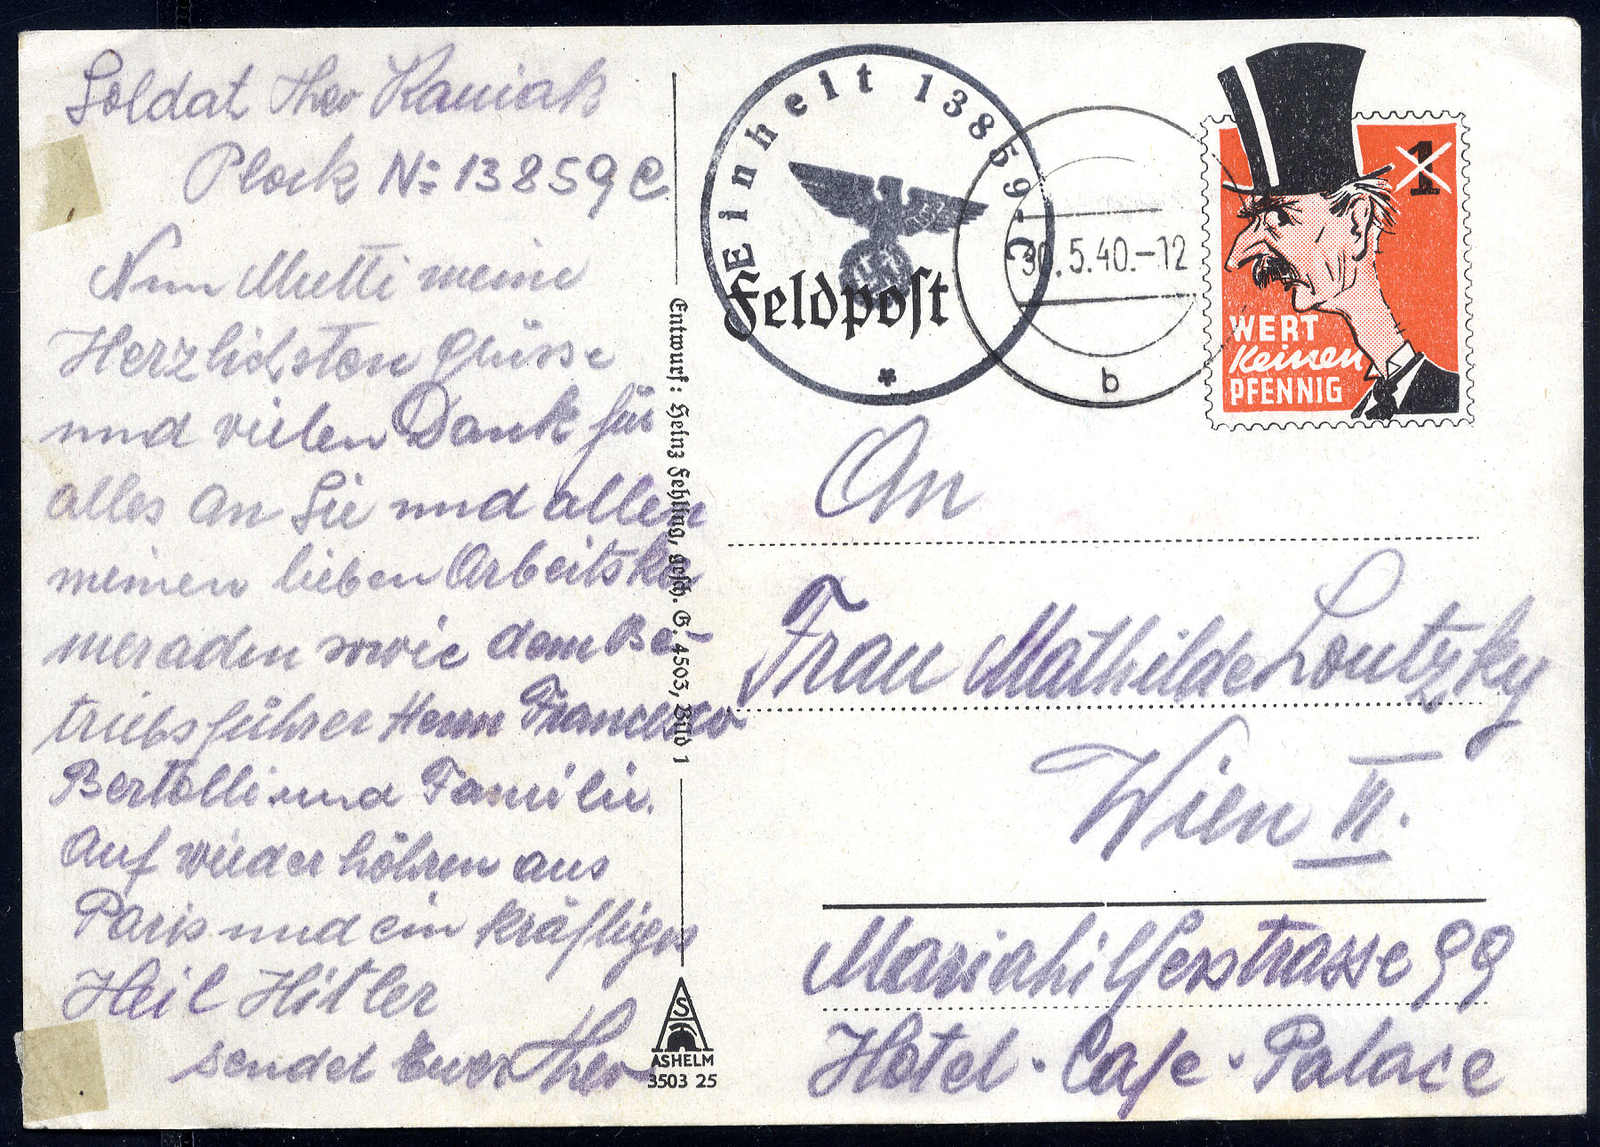 Soldat Theo Kaniak
Plock No 13859 C
Nun Mutti meine
Herzlichsten Grüsse
und vielen Dank für
alles an Sie und allen
meinen lieben Arbeitska
meraden sowie dem Be-
triebsführer Herrn Francesco
Bertolli und Familie.
Auf wieder höhren aus
Paris und ein kräftiges
Heil Hitler
sendet Euer Theo
Entwurf: Heinz Fehling, gesch. G. 4503, Bild 1
S
ASHELM
3503 25
Einheit 13859-C
Feldpost
30.5.40.-12
b
1
WERT
keinen
PFENNIG
An
Frau Mathilde Loutzky
Wien VI.
Mariahilferstrasse 99
Hotel - Cafe - Palace